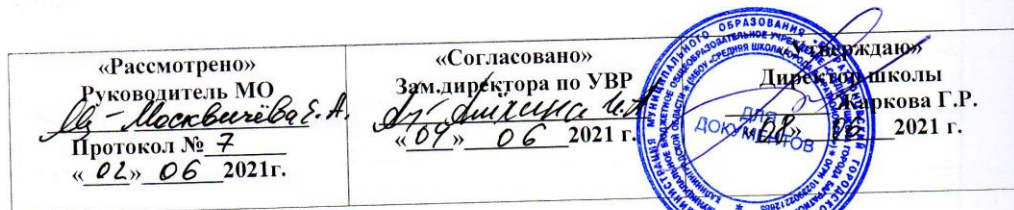 «Рассмотрено»
Руководитель МО
Москвичёва Е. А.
Протокол № 7
«02» 06 2021г.
«Согласовано»
Зам.директора по УВР
«04» 06 2021 г.
«Утверждаю»
Директор школы
Жаркова Г.Р.
«08» 06 2021 г.
ДЛЯ
ДОКУМЕНТОВ